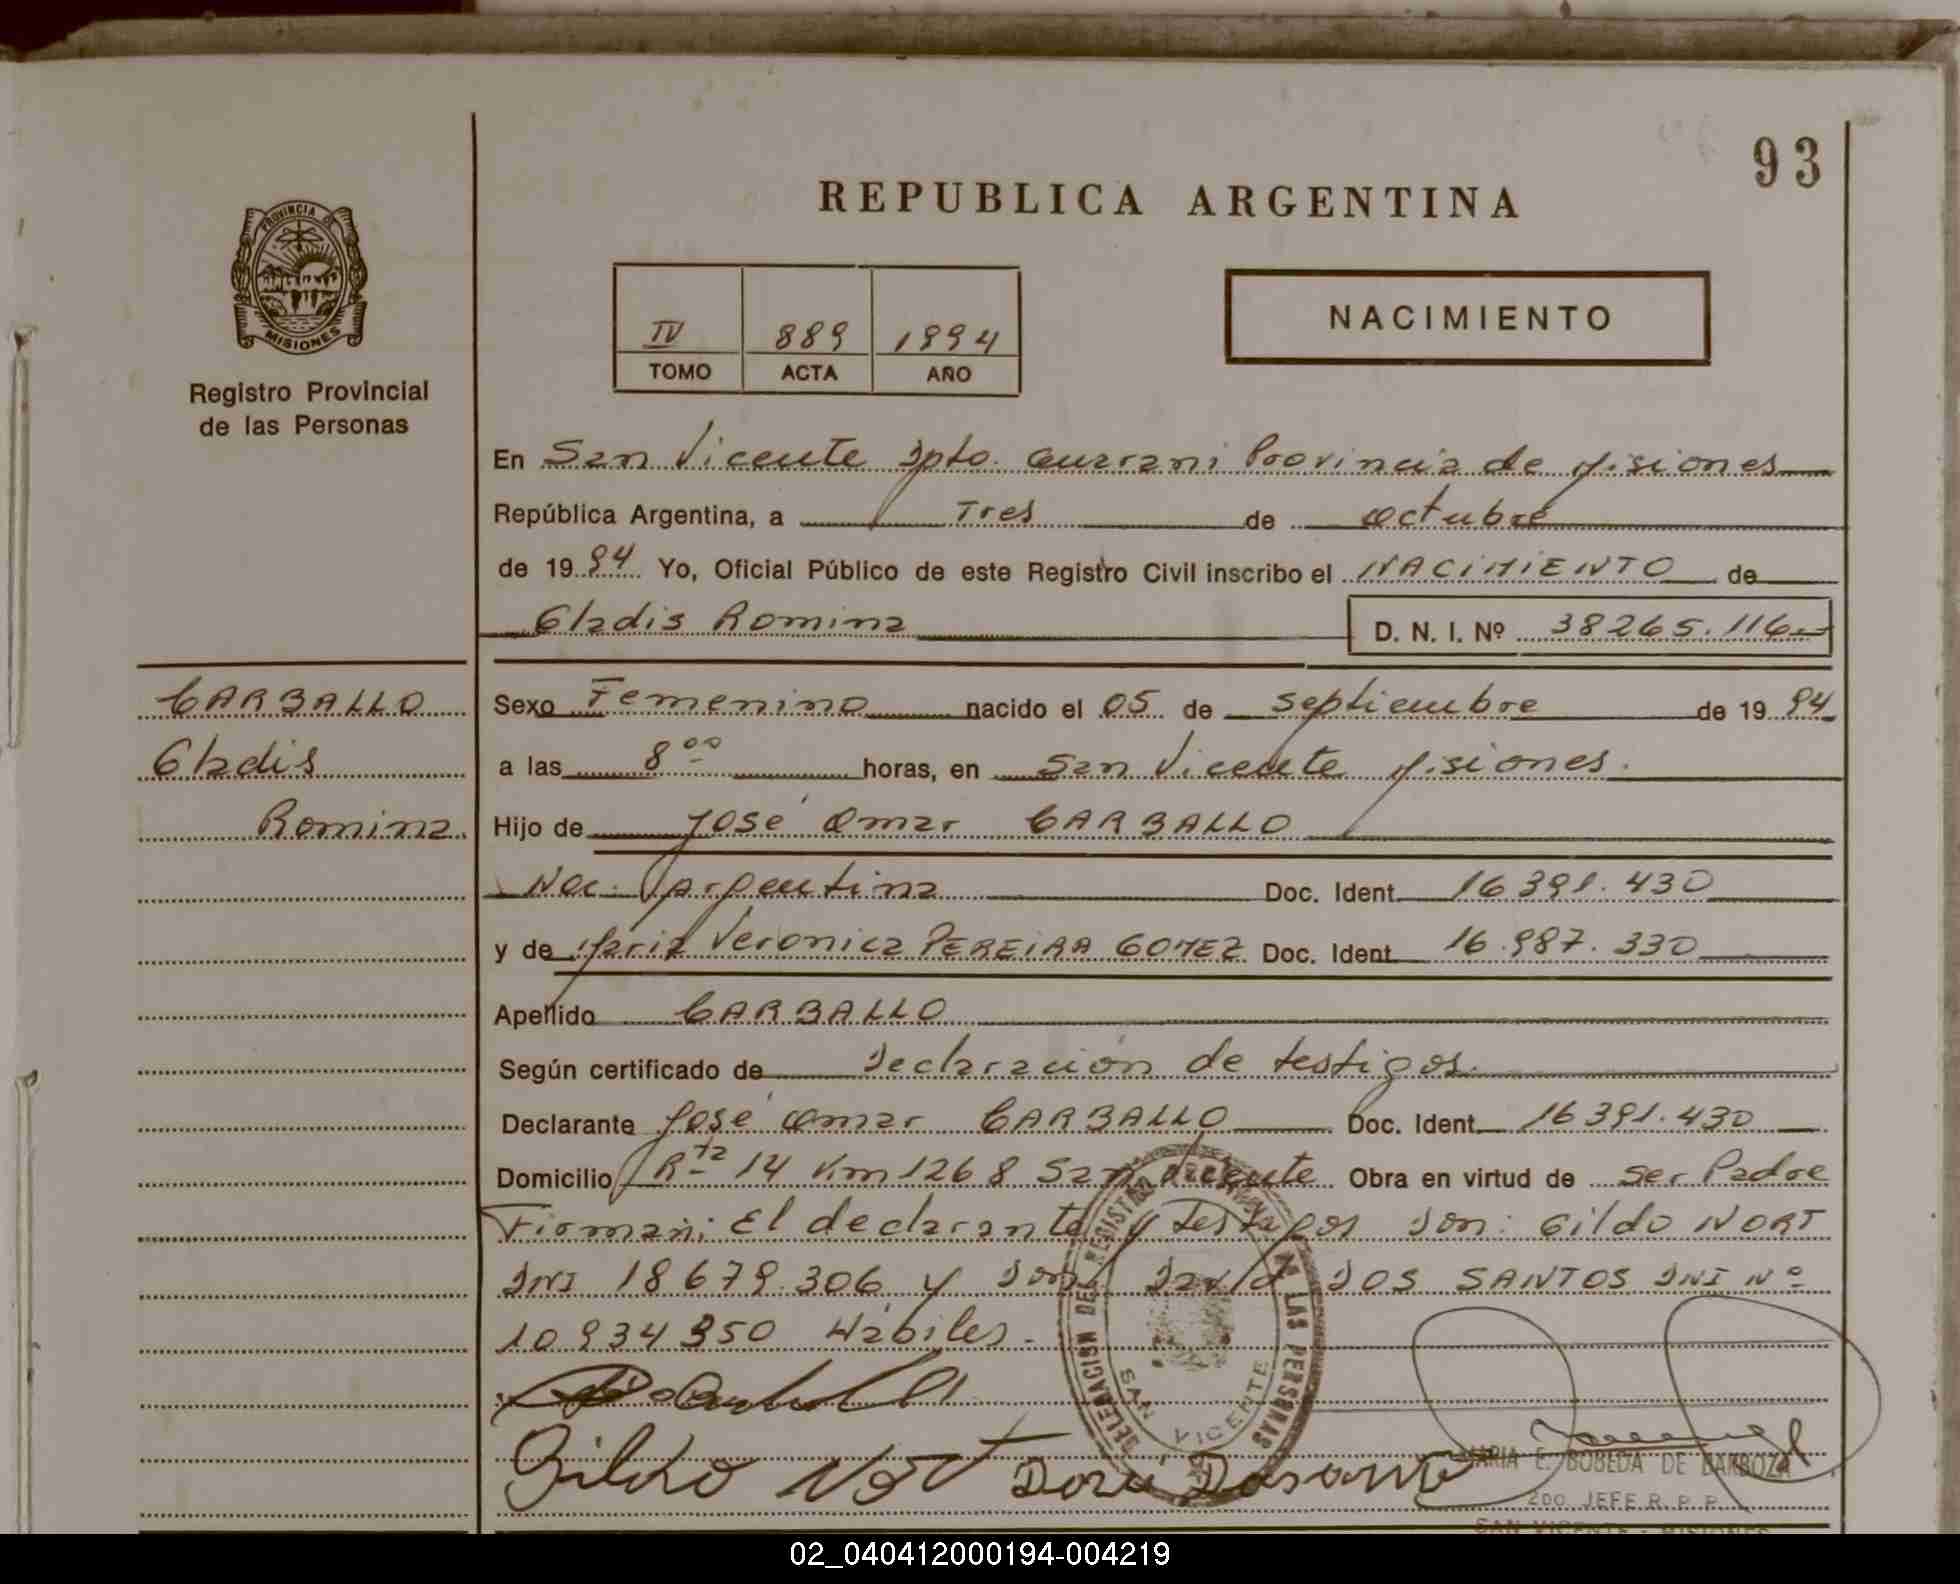 93
REPUBLICA ARGENTINA
PROVINCIA DE
MISIONES
Registro Provincial
de las Personas
IV 889 1994
TOMO ACTA AÑO
NACIMIENTO
En San Vicente Dpto. Guarani Provincia de Misiones
República Argentina, a Tres de octubre
de 1994 Yo, Oficial Público de este Registro Civil inscribo el NACIMIENTO de
Gladis Romina D. N. I. Nº 38265.116
CARBALLO
Gladis
Romina
Sexo Femenino nacido el 05 de septiembre de 1994
a las 8 00 horas, en San Vicente Misiones.
Hijo de José Omar CARBALLO
Nac. Argentina Doc. Ident. 16391.430
y de Maria Veronica PEREIRA GOMEZ Doc. Ident. 16.987.330
Apellido CARBALLO
Según certificado de Declaración de testigos.
Declarante José Omar CARBALLO Doc. Ident. 16391.430
Domicilio Rta 14 Km 1268 San Vicente Obra en virtud de ser Padre
Firman; El declarante y Testigos Don: Gildo NORT
DNI 18679.306 y Don DOS SANTOS DNI Nº
10934350 Hábiles.-
DELEGACION DEL REGISTRO DE LAS PERSONAS
SAN VICENTE
Gildo Nort
MARIA E. BOBEDA DE BARBOZA
2DO JEFE R. P. P.
SAN VICENTE - MISIONES
02_040412000194-004219